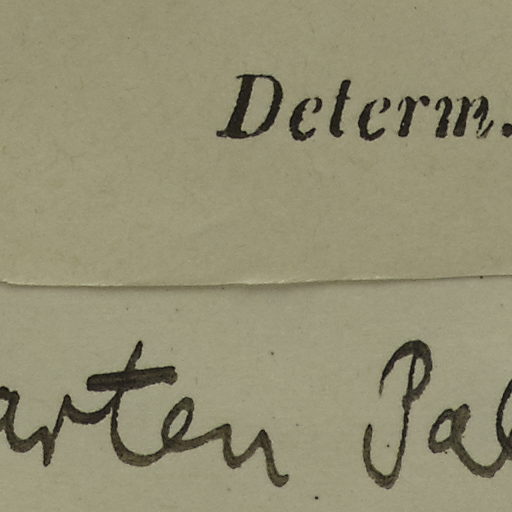 Determ.
arten Pal